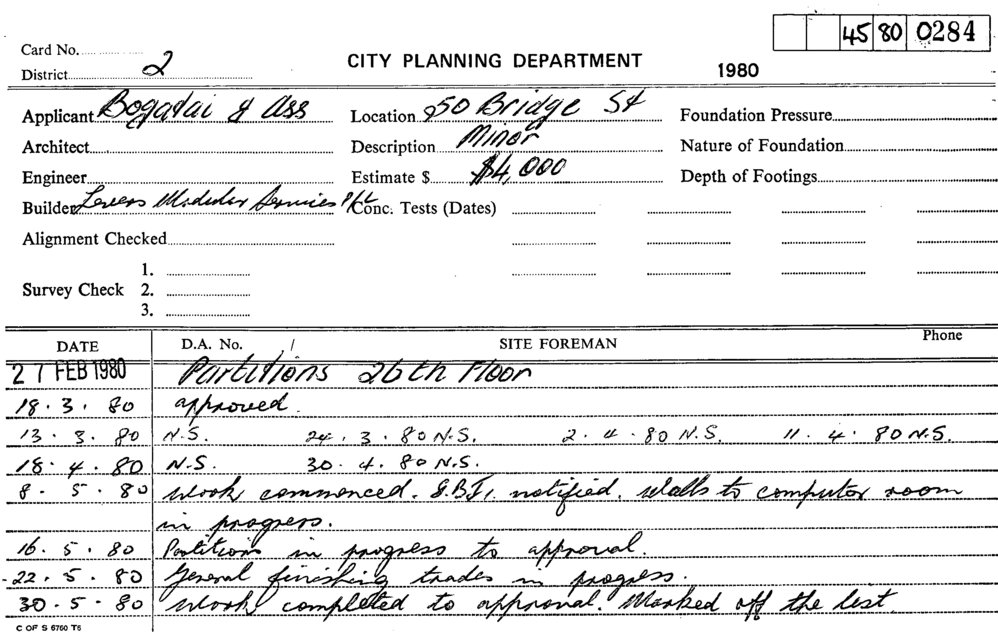 45 80 0284
Card No.
District 2
CITY PLANNING DEPARTMENT
1980
Applicant Bogadai & Ass Location 50 Bridge St Foundation Pressure
Architect Description Minor Nature of Foundation
Engineer Estimate $ $4,000 Depth of Footings
Builder Levers Modular Services P/L Conc. Tests (Dates)
Alignment Checked
1.
Survey Check 2.
3.
DATE D.A. No. / SITE FOREMAN Phone
27 FEB 1980 Partitions 26th Floor
18.3.80 approved.
13.3.80 N.S. 24.3.80 N.S. 2.4.80 N.S. 11.4.80 N.S.
18.4.80 N.S. 30.4.80 N.S.
8.5.80 Work commenced. notified. Walls to computor room
in progress.
16.5.80 Partitions in progress to approval.
22.5.80 General finishing trades in progress.
30.5.80 Work completed to approval. Marked off the list
C OF S 6760 T6